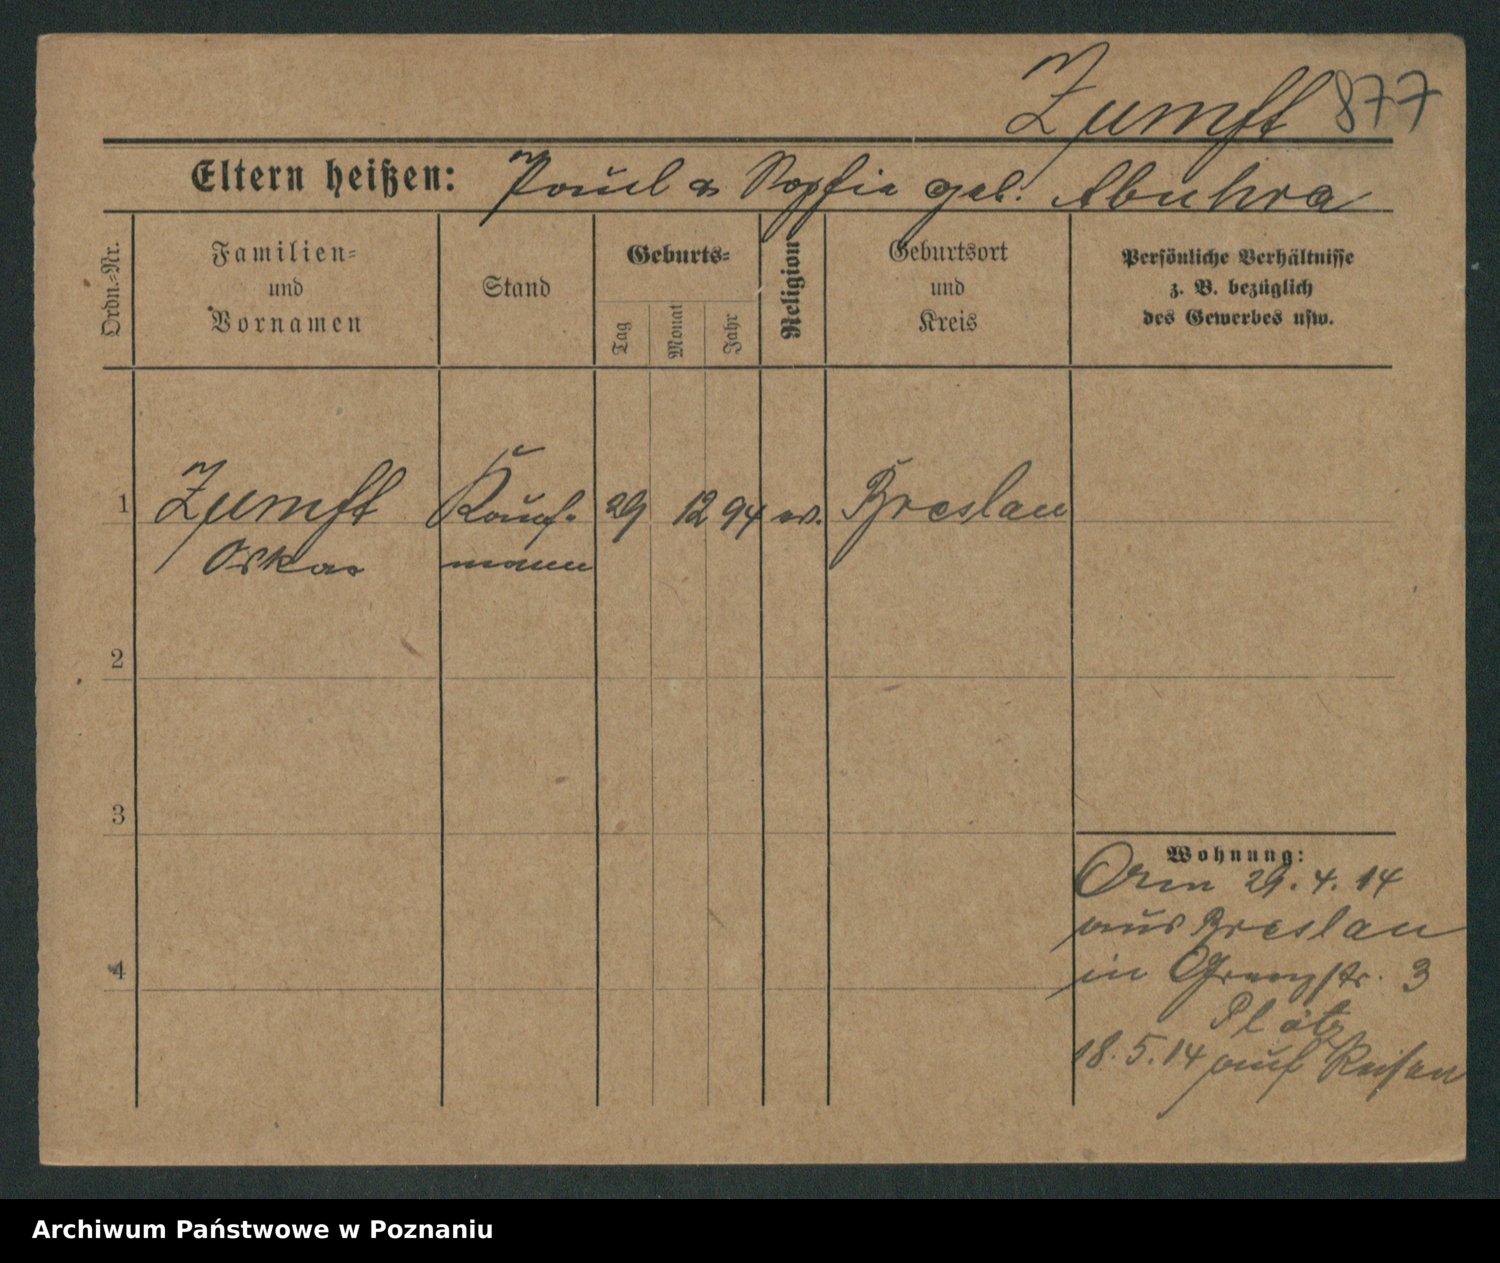 Zumft 877
Eltern heißen: Paul & Sophie geb. Abuhra
Ordn.-Nr.
Familien-
und
Vornamen
Stand
Geburts-
Tag
Monat
Jahr
Religion
Geburtsort
und
Kreis
Persönliche Verhältnisse
z. B. bezüglich
des Gewerbes usw.
1 Zumft Kauf- 29 12 94 ev. Breslau
Oskar mann
2
3
Wohnung:
29.4.14
aus Breslau
4
in Grenzstr. 3
Plötz
18.5.14 auf Reisen
Archiwum Państwowe w Poznaniu